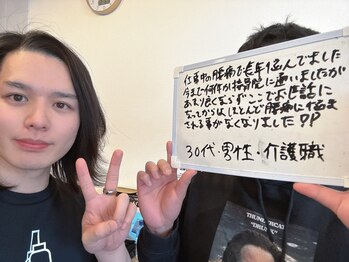 仕事中の腰痛で長年悩んでました
今まで何件か接骨院に通いましたが
あまり良くならずここでお世話に
なってからはほとんど腰痛に悩ま
される事がなくなりました!!
30代・男性・介護職
THUNDERCAT
"DRUNK"